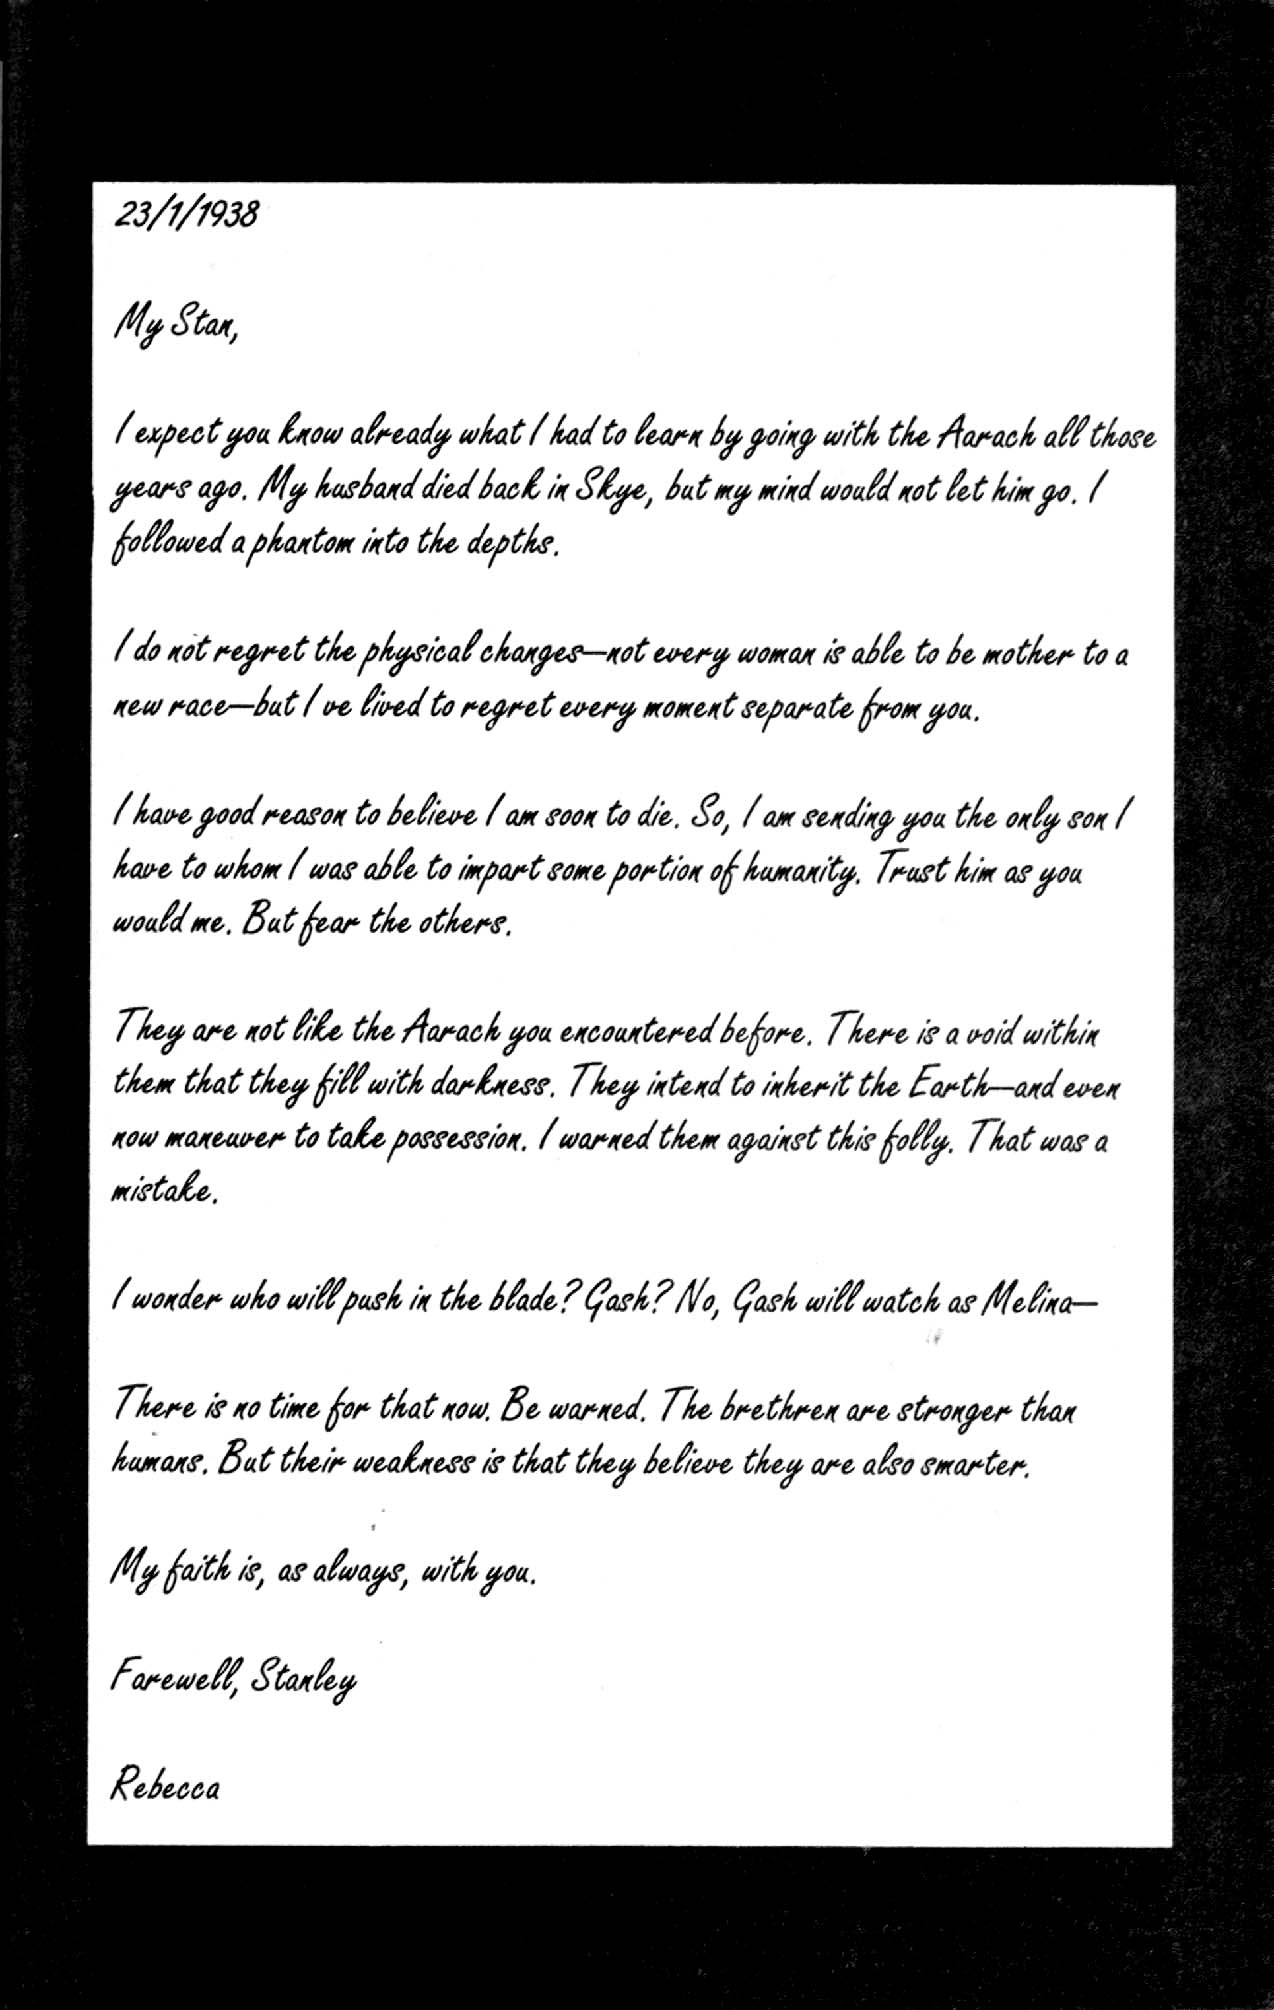 23/1/1938
My Stan,
I expect you know already what I had to learn by going with the Aarach all those
years ago. My husband died back in Skye, but my mind would not let him go. I
followed a phantom into the depths.
I do not regret the physical changes—not every woman is able to be mother to a
new race—but I ve lived to regret every moment separate from you.
I have good reason to believe I am soon to die. So, I am sending you the only son I
have to whom I was able to impart some portion of humanity. Trust him as you
would me. But fear the others.
They are not like the Aarach you encountered before. There is a void within
them that they fill with darkness. They intend to inherit the Earth—and even
now maneuver to take possession. I warned them against this folly. That was a
mistake.
I wonder who will push in the blade? Gash? No, Gash will watch as Melina—
There is no time for that now. Be warned. The brethren are stronger than
humans. But their weakness is that they believe they are also smarter.
My faith is, as always, with you.
Farewell, Stanley
Rebecca